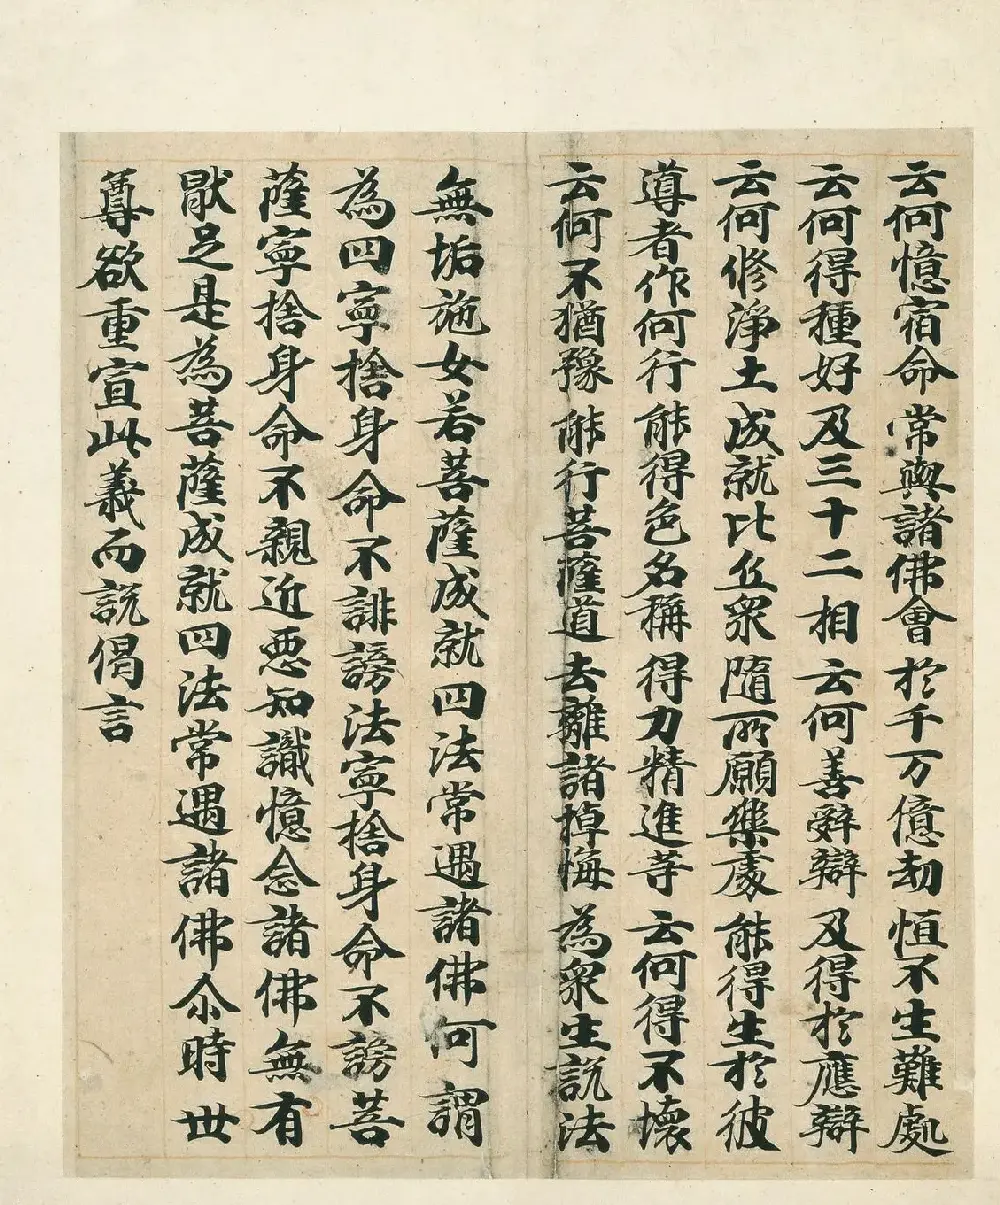 云何憶宿命 常與諸佛會 於千万億劫 恒不生難處
云何得種好 及三十二相 云何善辤辯 及得於應辯
云何修淨土 成就比丘衆 隨所願樂處 能得生於彼
尊者作何行 能得色名稱 得力精進等 云何得不壞
云何不猶豫 能行菩薩道 去離諸掉悔 為衆生説法
無垢施女若菩薩成就四法常遇諸佛何謂
為四寧捨身命不誹謗法寧捨身命不謗菩
薩寧捨身命不親近惡知識憶念諸佛無有
猒足是為菩薩成就四法常遇諸佛尒時世
尊欲重宣此義而説偈言